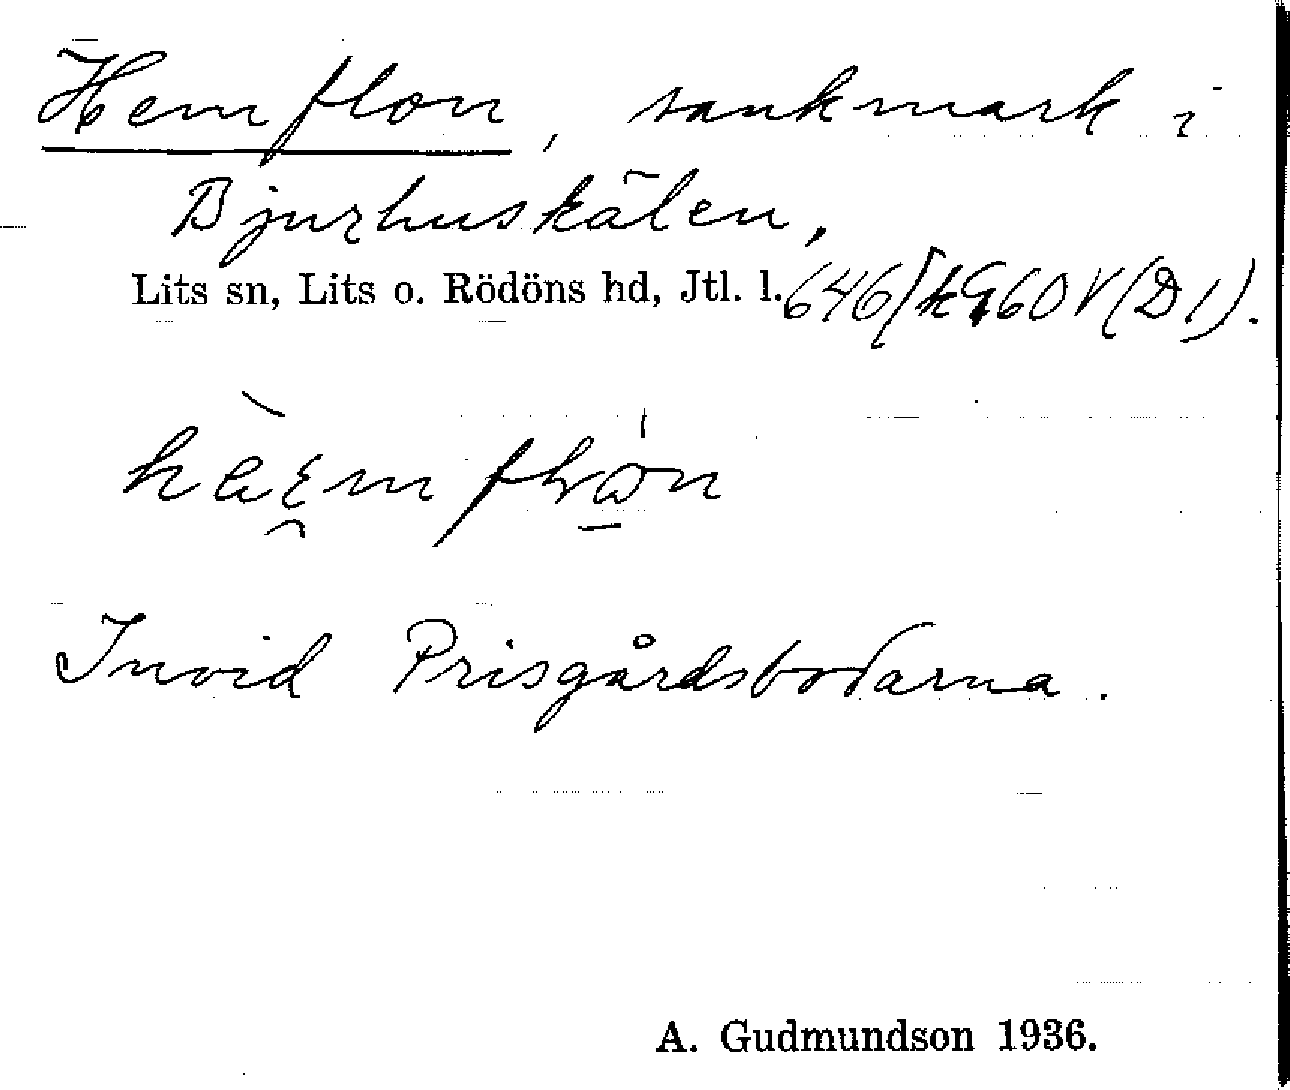 Hemflon, sankmark i
Bjurhuskälen,
Lits sn, Lits o. Rödöns hd, Jtl. l.
Invid Prisgårdsbodarna.
A. Gudmundson 1936.